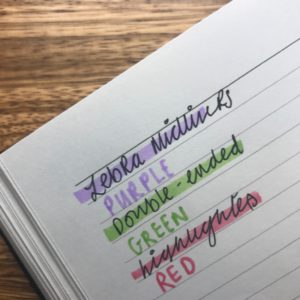 Zebra Midliners
PURPLE
Double-ended
GREEN
highlighter
RED